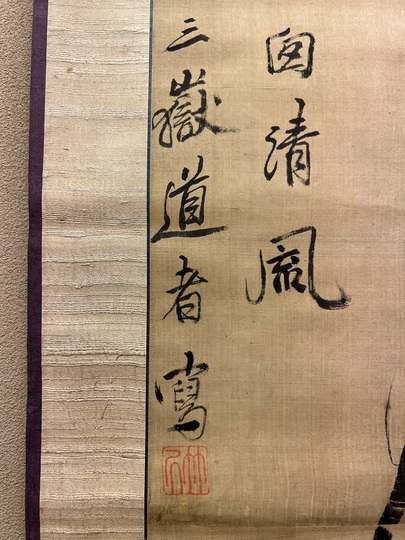 囱清風
三嶽道者寫